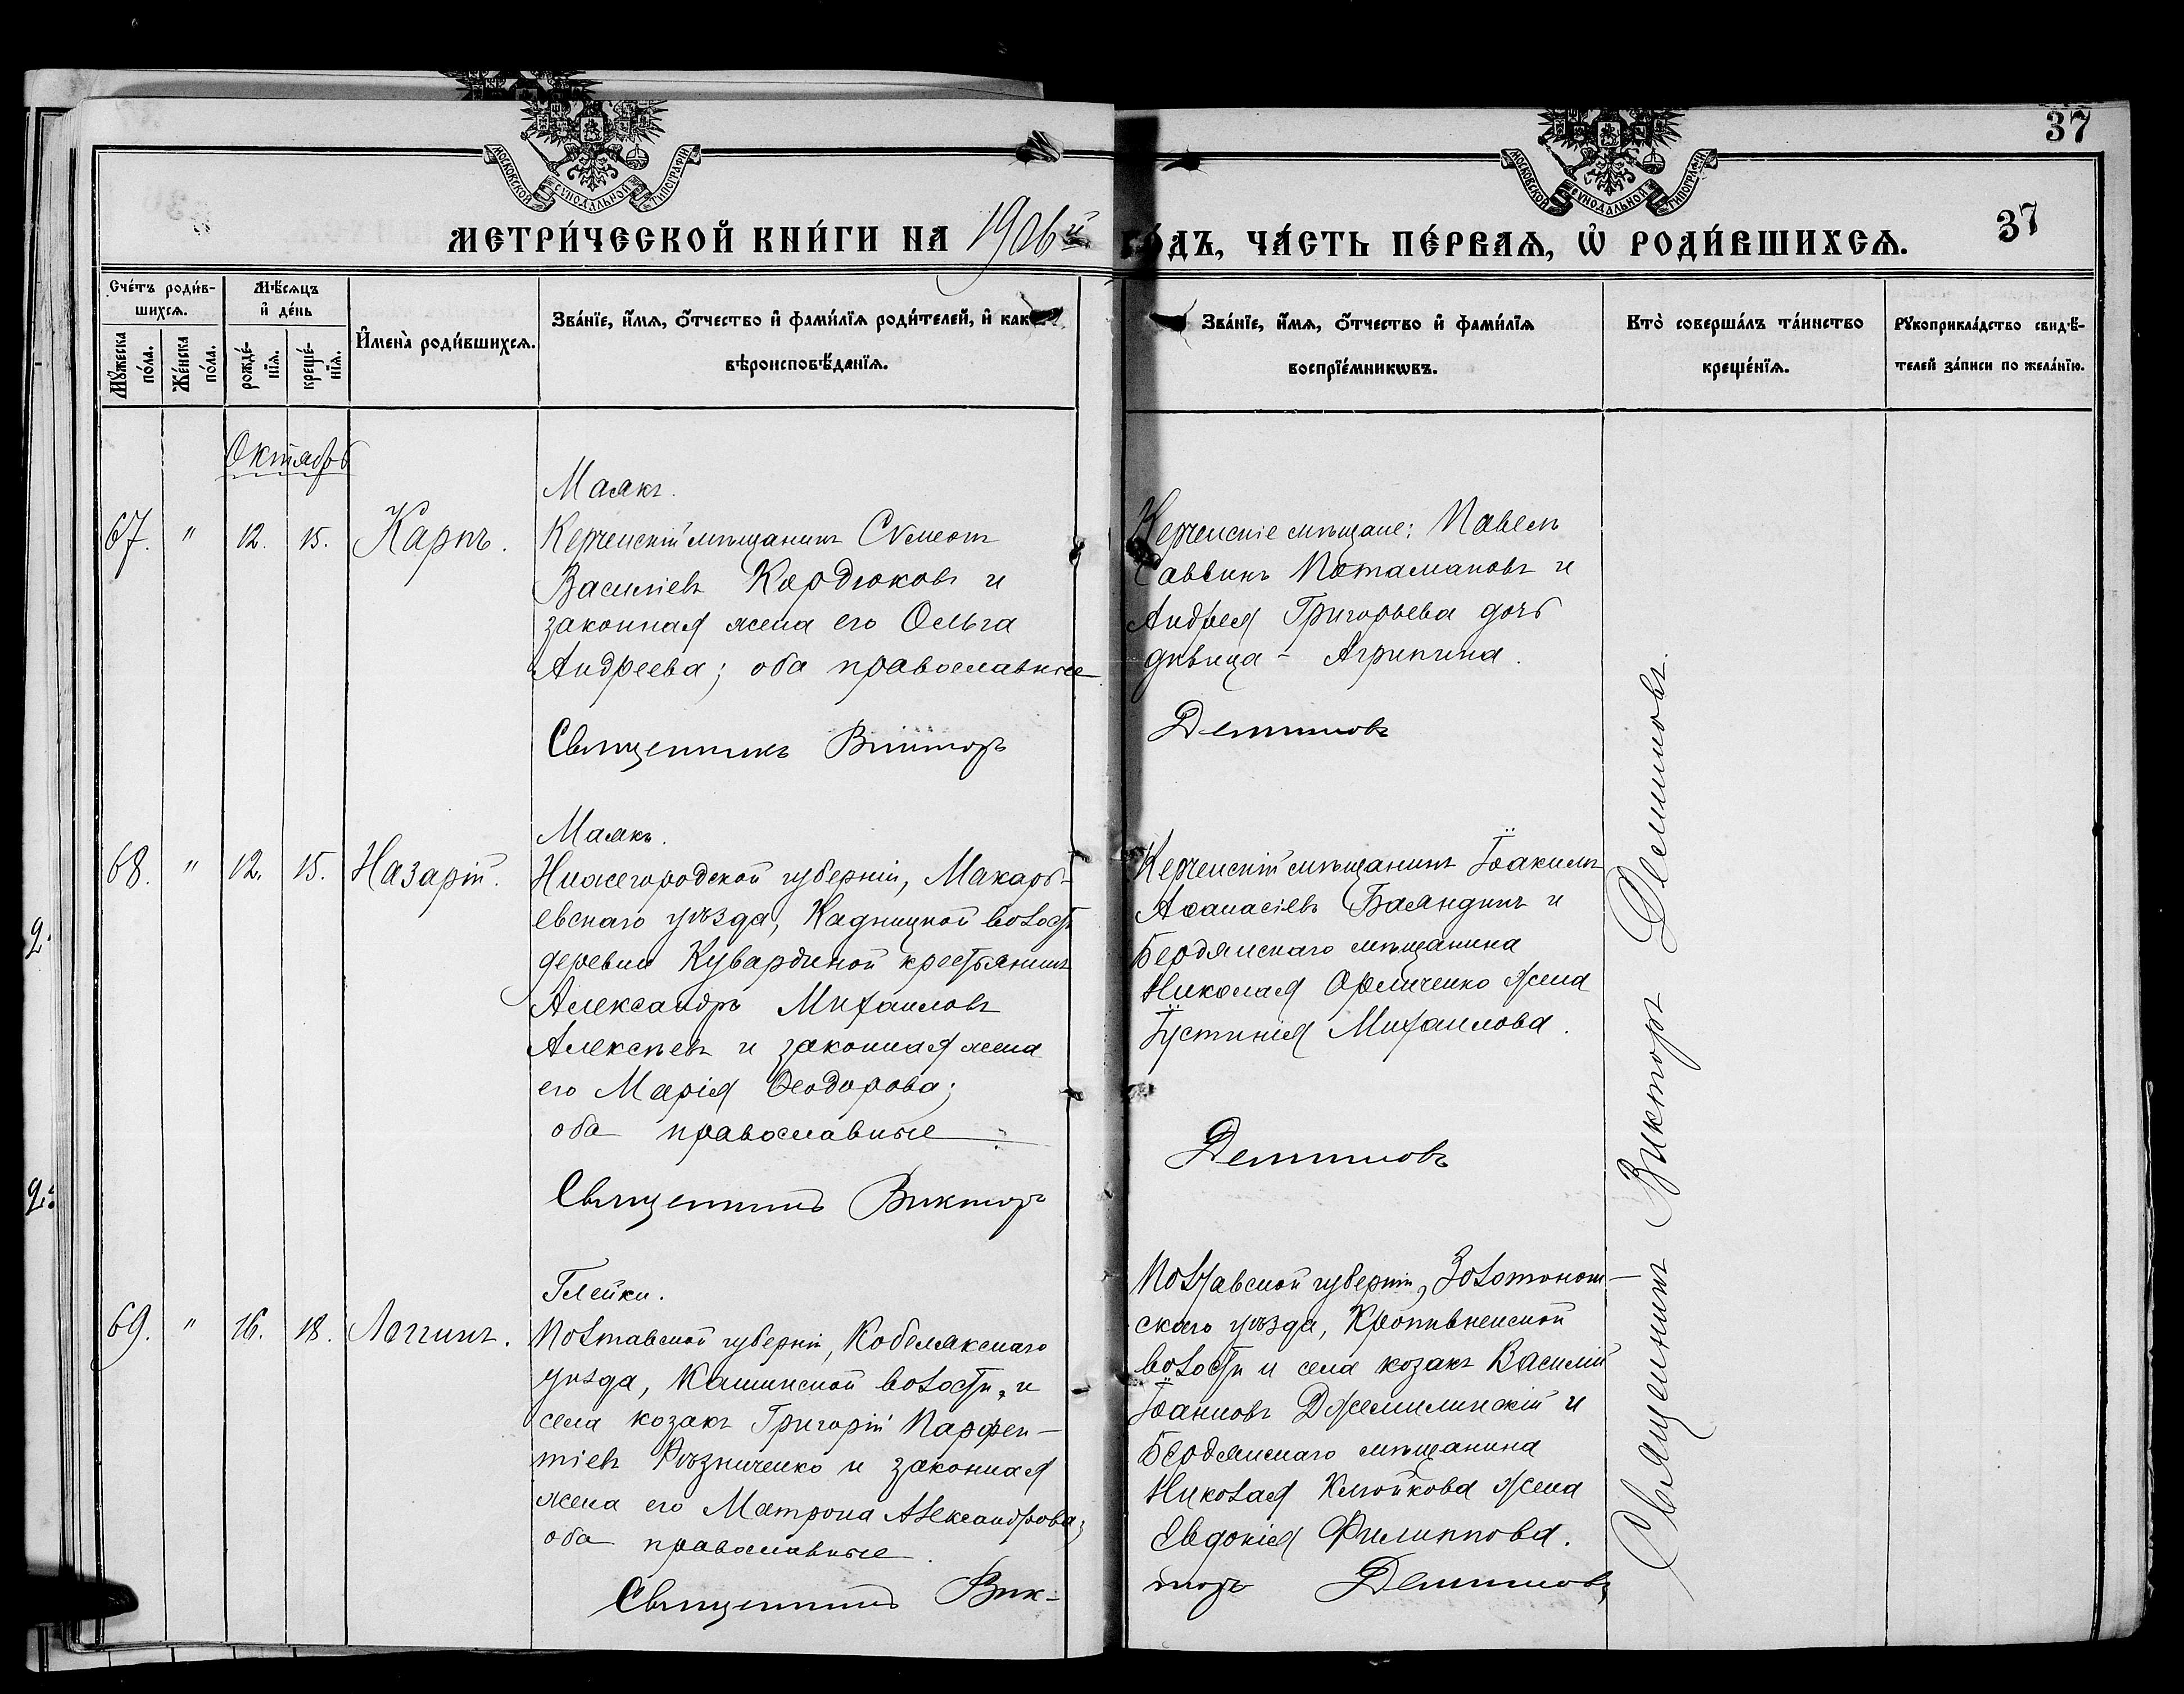 37
МОСКОВСКОЙ СѴНОДАЛЬНОЙ ТИПОГРАФІИ
МОСКОВСКОЙ СѴНОДАЛЬНОЙ ТИПОГРАФІИ
МЕТРИ́ЧЕСКОЙ КНИ́ГИ НА 1906й ГО́ДЪ, ЧА́СТЬ ПЕ́РВАѦ, Ѡ҆ РОДИ́ВШИХСѦ.
37
Сче́тъ роди́в-
шихсѧ.
Мꙋ́жеска по́ла.
Же́нска по́ла.
Мѣ́сяцъ
и҆ де́нь
рожде́-
нїѧ.
креще́-
нїѧ.
И҆мена̀ роди́вшихсѧ.
Зва́нїе, и҆́мѧ, ѻ҆́тчество и҆ фами́лїѧ роди́телей, и҆ како́гѡ
вѣроисповѣ́данїѧ.
Зва́нїе, и҆́мѧ, ѻ҆́тчество и҆ фами́лїѧ
воспрїе́мникѡвъ.
Кто̀ соверша́лъ та́инство
креще́нїѧ.
Рꙋкоприкла́дство свидѣ́-
телей за́писи по жела́нїю.
Октябрь
Маякъ.
67. " 12. 15. Карпъ. Керченскій мѣщанинъ Сѵмеонъ
Василіевъ Кордюковъ и
законная жена его Ольга
Андреева; оба православные
Священникъ Викторъ
Керченскіе мѣщане: Павелъ
Саввинъ Потамановъ и
Андрея Григорьева дочь
дѣвица - Агрипина.
Деминовъ
Маякъ.
68. " 12. 15. Назарій. Нижегородской губерніи, Макарь-
евскаго уѣзда, Кадницкой волости
деревни Кувардиной крестьянинъ
Александръ Михаиловъ
Алексѣевъ и законная жена
его Марія Ѳеодорова;
оба православные
Священникъ Викторъ
Керченскій мѣщанинъ Іоакимъ
Аѳанасіевъ Баландинъ и
Бердянскаго мѣщанина
Николая жена
Іустинія Михаилова.
Деминовъ
Глейки.
69. " 16. 18. Логгинъ. Полтавской губерніи, Кобелякскаго
уѣзда, Кишинской волости и
села козакъ Григорій Парфен-
тіевъ Рѣзниченко и законная
жена его Матрона Александрова;
оба православные.
Священникъ Вик-
Полтавской губерніи, Золотонош-
скаго уѣзда, Кропивненской
волости и села козакъ Василій
Іоанновъ Джемилинскій и
Бердянскаго мѣщанина
Николая Клюйкова жена
Евдокія Филиппова.
торъ Деминовъ
Священникъ Викторъ Деминовъ.